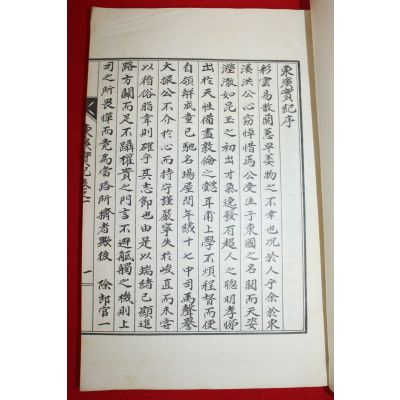 東溪實紀序
彩雲易散蘭蕙早萎物之不幸也況於人乎余於東
溪洪公心竊悼惜焉公受生于東國之名閥而天姿
瀅澈如昆玉之初出才氣逸發有超人之聰明孝悌
出於天性備盡敦倫之懿耳甫上學不煩程督而便
自領解成童已馳名場屋間年纔十七中司馬聲譽
大振公不介於心而持守謹嚴寧失於峻直而未嘗
以循俗脂韋則確乎其志節也由是以端緖已顯進
路方闢而足不躡權貴之門言不避觝觸之機則上
司之所畏憚而竟爲當路所擠者歟後 除郎官一
東溪實紀卷之一
一